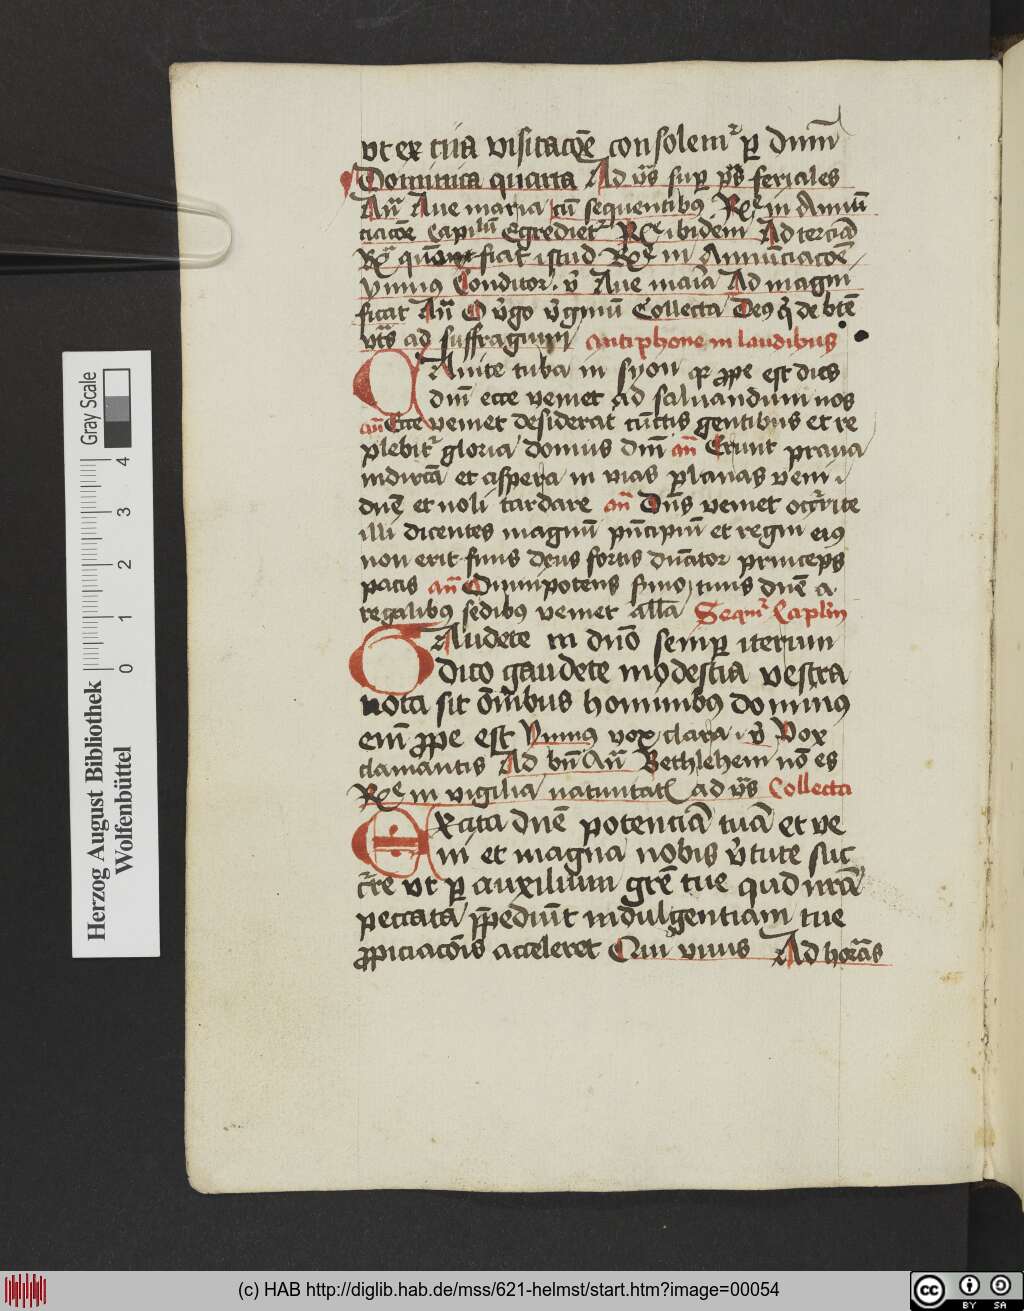 vt ex tua visitacōe consolemʳ ꝑ dnm̄
Dominica quarta Ad vr̄s suꝑ pṡ feriales
An̄ Aue maria cū sequentibꝰ Rꝰ in Annū
ciacōe Capi^lm Egredietʳ Rꝰ ibidem Ad terciā
Rꝰ ficat istud Rꝰ in Annūciacōe
ymnus Conditor . v̄ Aue maīa Ad magni
ficat An̄ O v̄go v̄ginū Collecta Deꝰ q̄ de btē
vt sͣ ad suffragium Antiphone in laudibus
CAnite tuba in syon qꝛ ꝓpe est dies
dn̄i ecce veniet ad saluandum nos
an̄ Ecce veniet desiderat cūctis gentibus et re
plebitʳ gloria domus dn̄i an̄ Erunt praua
indirctā et aspera in vias planas veni
dn̄e et noli tardare an̄ Dn̄s veniet occr̄ite
illi dicentes magnū pn̄cipiū et regni eiꝰ
non erit finis deus fortis dn̄ator princeps
pacis an̄ Omnipotens sermo tuus dn̄e a
regalibꝰ sedibꝰ veniet all̄a Sequiʳ Caplm̄
GAudete in dn̄o semꝑ iterum
dico gaudete modestia vestra
nota sit om̄ibus hominibꝰ dominus
enī ꝓpe est ymnꝰ vox clara v̄ Vox
clamantis Ad bn̄ An̄ Bethlehem nō es
Rꝰ in vigilia natiuitatꝭ ad vr̄s Collecta
Excita dn̄e potenciā tuā et ve
ni et magna nobis v̄tute suc
cr̄re vt ꝑ auxilium grē tue quod nrā
peccata p̄pediūt indulgentiam tue
ꝓpiciacōis acceleret Qui viuis Ad horas
Herzog August Bibliothek
Wolfenbüttel
Gray Scale
0 1 2 3 4
(c) HAB http://diglib.hab.de/mss/621-helmst/start.htm?image=00054
cc BY SA